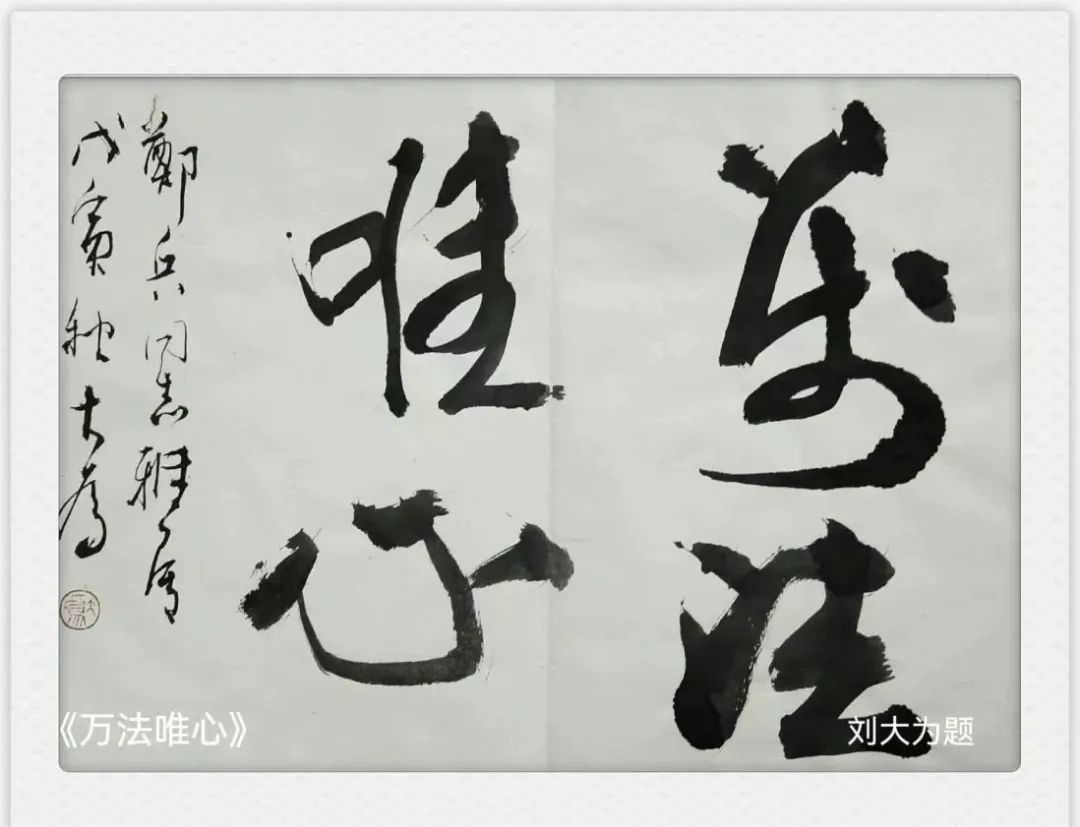 萬法
唯心
鄭兵同志雅属
戊寅秋大為
《万法唯心》
刘大为题